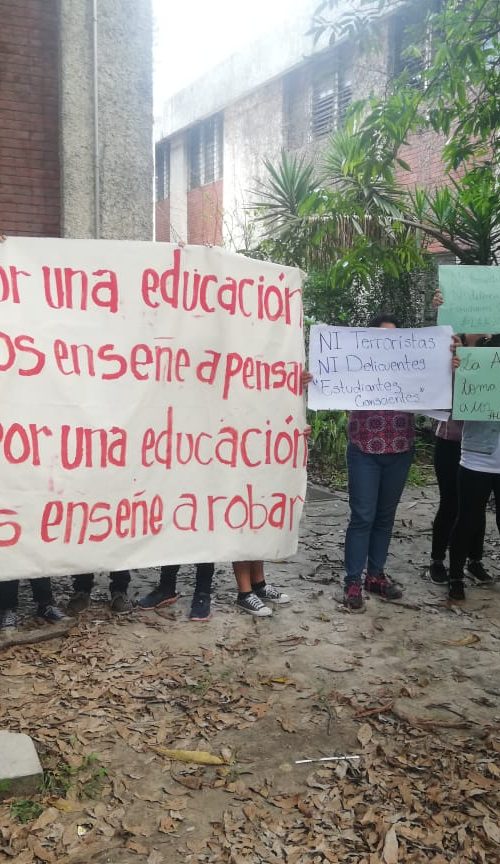 or una educación
os enseñe a pensar
por una educación
s enseñe a robar
NI Terroristas
NI Delicuentes
"Estudiantes
Conscientes"
La A
toma